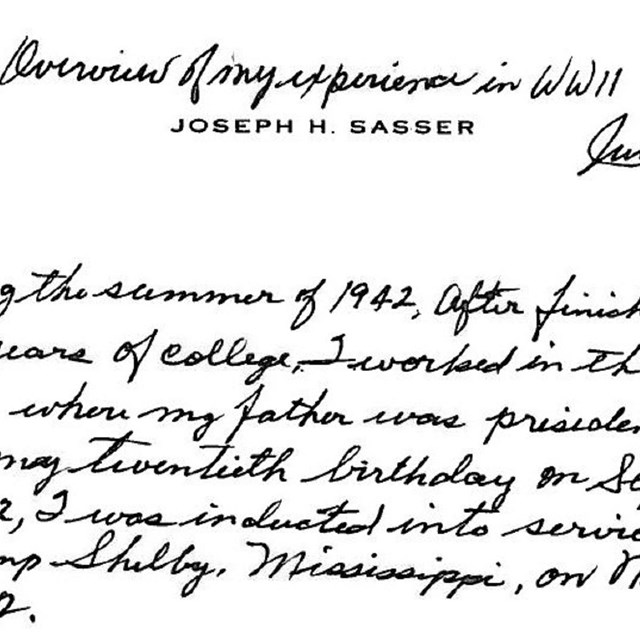 Overview of my experience in WWII
JOSEPH H. SASSER
g the summer of 1942, After finish
ears of college, I worked in th
where my father was presiden
my twentieth birthday on Se
2, I was inducted into servic
mp Shelby, Mississippi, on
2.